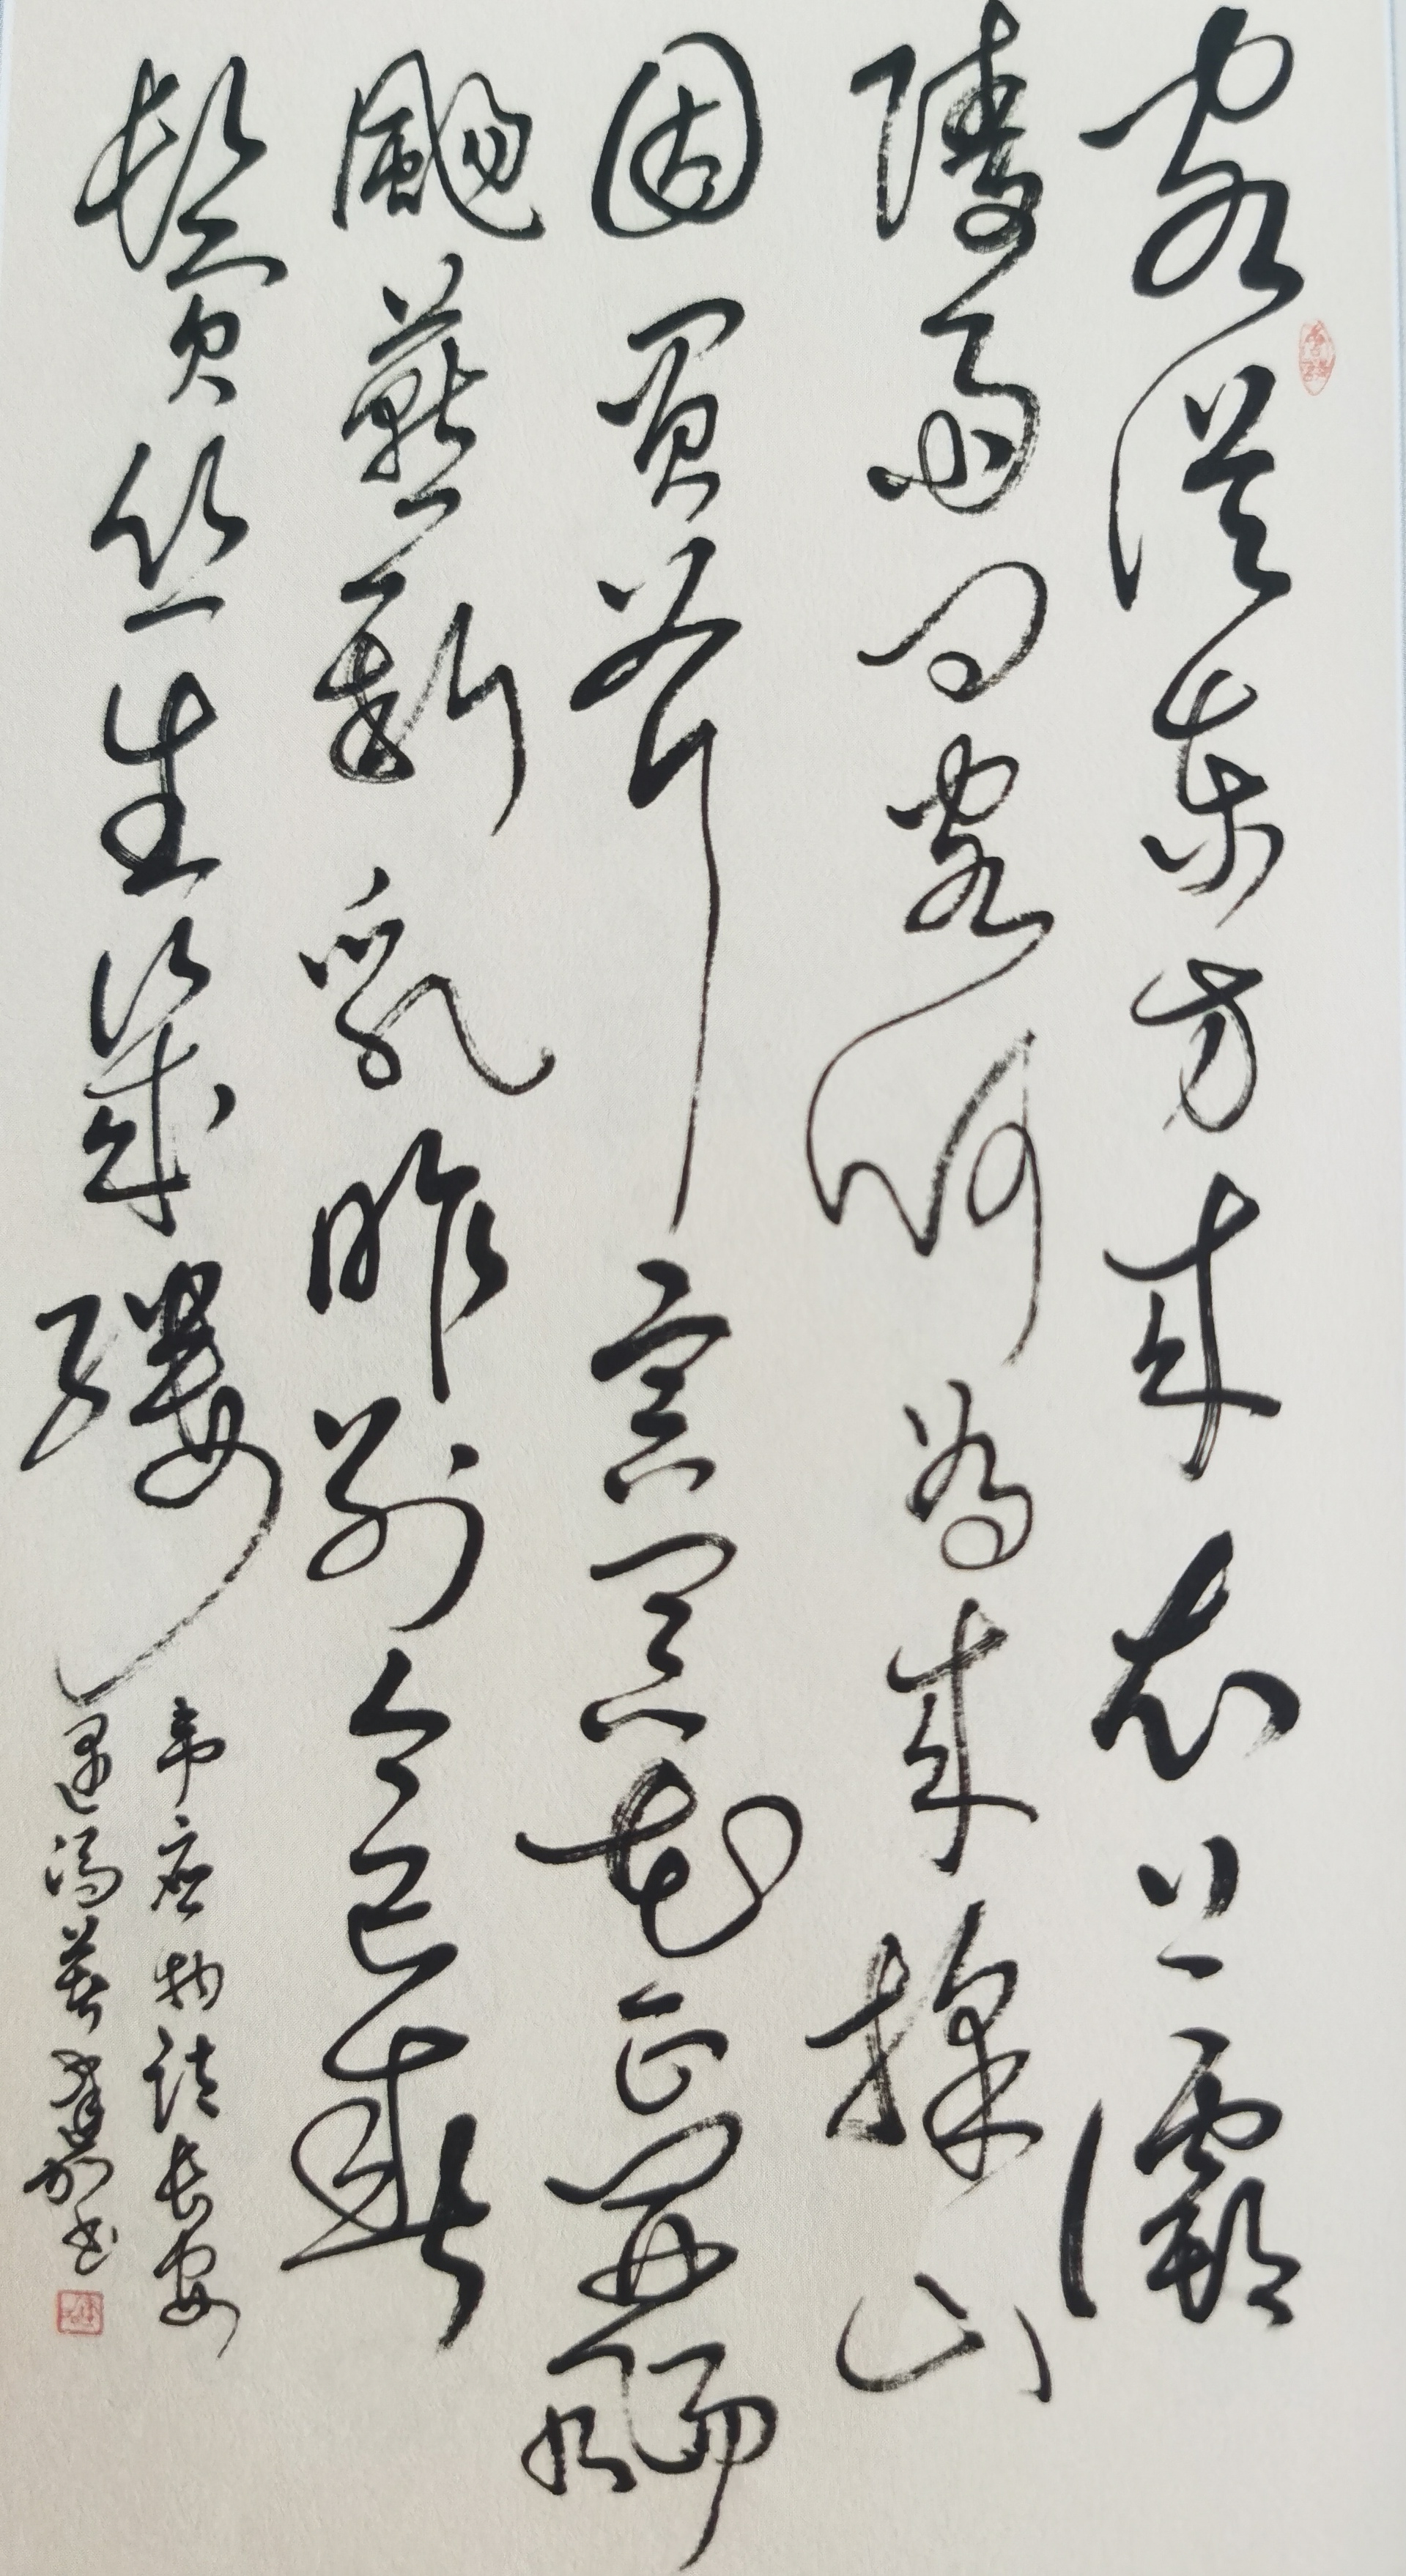 客從東方來衣上灞
陵雨問客何為來採山
因買斧冥冥花正開颺
颺燕新乳昨別今已春
鬢絲生幾縷
韋應物詩長安
遇馮著 書